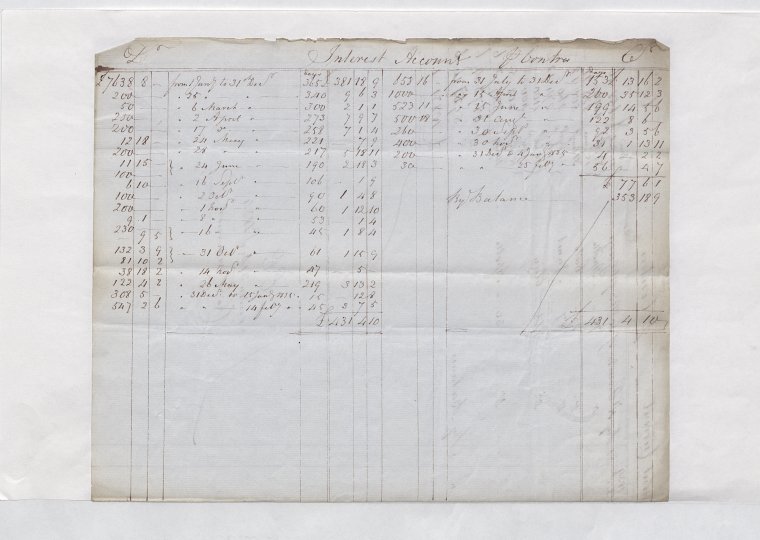 Dr Interest Account P Contra Cr
Days Days
£7638 8 - from Jany to 31st Decr 365 £ 381 18 9 153 16 - from 31 July to 31 Decr 153 £ 13 16 2
200 " " 340 9 6 3 1000 15 April " 260 35 12 3
50 " 6 March " 300 2 1 1 523 11 - " 25 June " 199 14 5 6
200 " 2 April " 273 7 9 7 500 18 " 31 Augt " 122 8 6 -
200 " 17 " " 258 7 1 4 260 " 30 Sept " 92 3 5 6
12 18 " 24 May " 221 7 9 400 " 30 Novr " 31 1 13 11
200 " 28 " " 217 5 18 11 200 31 Decr 4 Jany 4 2 2
11 15 } " 24 June " 190 2 18 3 30 " " 25 Feby " 56 4 7
100
6 10 " 16 Septr 106 1 9 £ 77 6 1
100 " 2 Octr " 90 1 4 8 By Balance 353 18 9
200 " 1 Novr " 60 1 12 10
9 1 " 8 " " 53 1 4
230 } " 16 " " 45 1 8 4
9 5
132 3 9 } " 31 Octr " 61 1 15 9
81 10 2
38 18 2 " 14 Novr " 47 5
122 4 2 " 26 May " 219 3 13 2
308 5 " 31 Decr to 15 Jany 15 12 8
547 2 6 " " 14 Feby " 45 3 7 5
£ 431 4 10 £ 431 4 10